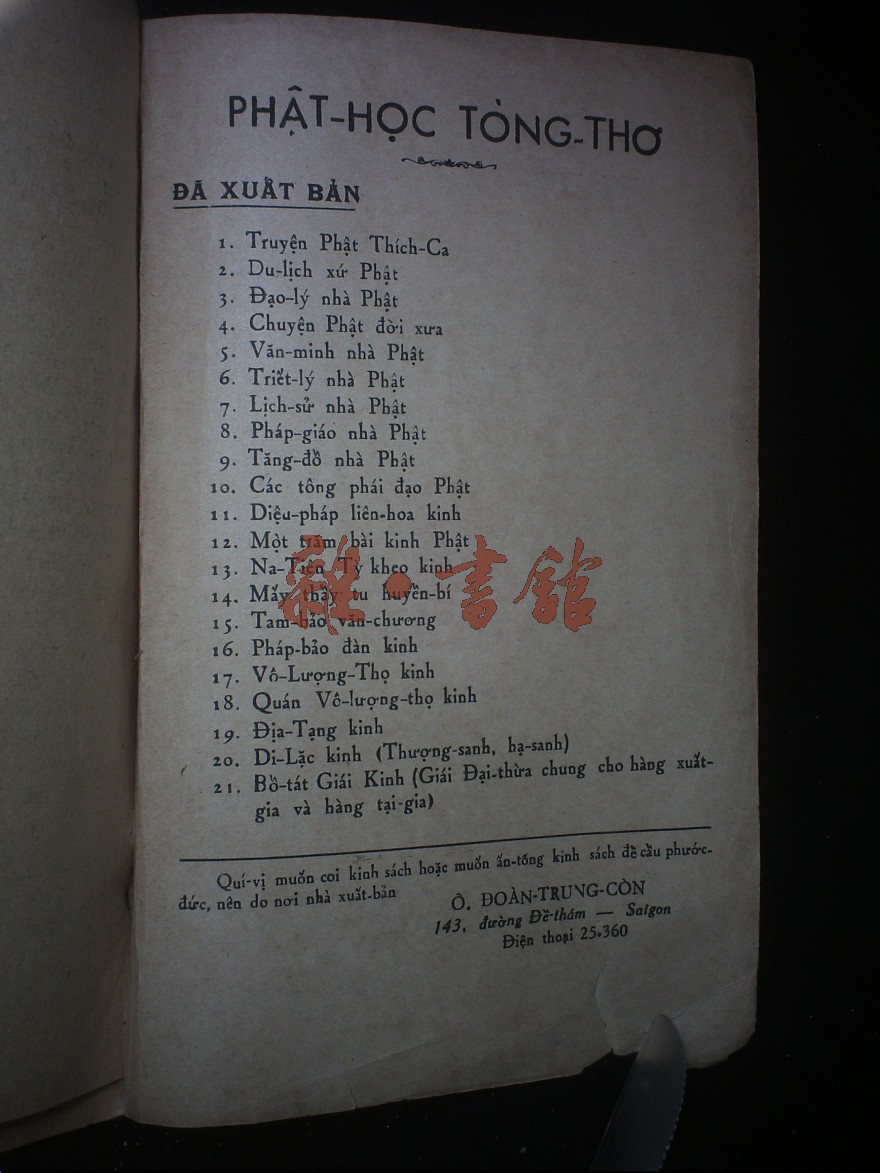 PHẬT-HỌC TÒNG-THƠ
ĐÃ XUẤT BẢN
1. Truyện Phật Thích-Ca
2. Du-lịch xứ Phật
3. Đạo-lý nhà Phật
4. Chuyện Phật đời xưa
5. Văn-minh nhà Phật
6. Triết-lý nhà Phật
7. Lịch-sử nhà Phật
8. Pháp-giáo nhà Phật
9. Tăng-đồ nhà Phật
10. Các tông phái đạo Phật
11. Diệu-pháp liên-hoa kinh
12. Một trăm bài kinh Phật
13. Na-Tiên Tỳ kheo kinh
14. Mấy thầy tu huyền-bí
15. Tam-bảo văn-chương
16. Pháp-bảo đàn kinh
17. Vô-Lượng-Thọ kinh
18. Quán Vô-lượng-thọ kinh
19. Địa-Tạng kinh
20. Di-Lặc kinh (Thượng-sanh, hạ-sanh)
21. Bồ-tát Giái Kinh (Giái Đại-thừa chung cho hàng xuất-
gia và hàng tại-gia)
Quí-vị muốn coi kinh sách hoặc muốn ấn-tống kinh sách để cầu phước-
đức, nên do nơi nhà xuất-bản
Ô. ĐOÀN-TRUNG-CÒN
143, đường Đề-thám — Saigon
Điện thoại 25.360
雜·書館